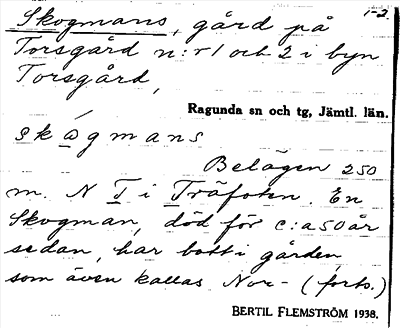 1-2.
Skogmans, gård på
Torsgård n:r 1 och 2 i byn
Torsgård,
Ragunda sn och tg, Jämtl. län.
skågmans
Belägen 250
m. N T i Träfoten. En
Skogman, död för c:a 50 år
sedan, har bott i gården,
som även kallas Nor- (forts.)
BERTIL FLEMSTRÖM 1938.